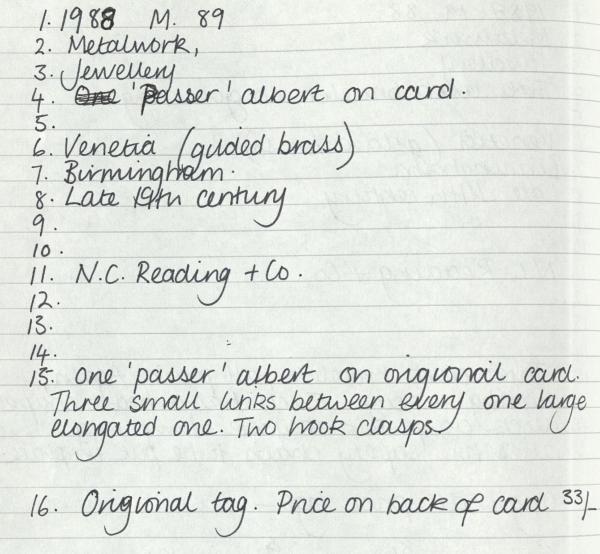 1. 1988 M. 89
2. Metalwork,
3. Jewellery
4. One 'Passer' albert on card.
5.
6. Venetia (guided brass)
7. Birmingham.
8. Late 19th century
9.
10.
11. N.C. Reading + Co.
12.
13.
14.
15. One 'passer' albert on origional card.
Three small links between every one large
elongated one. Two hook clasps.
16. Origional tag. Price on back of card 33/-